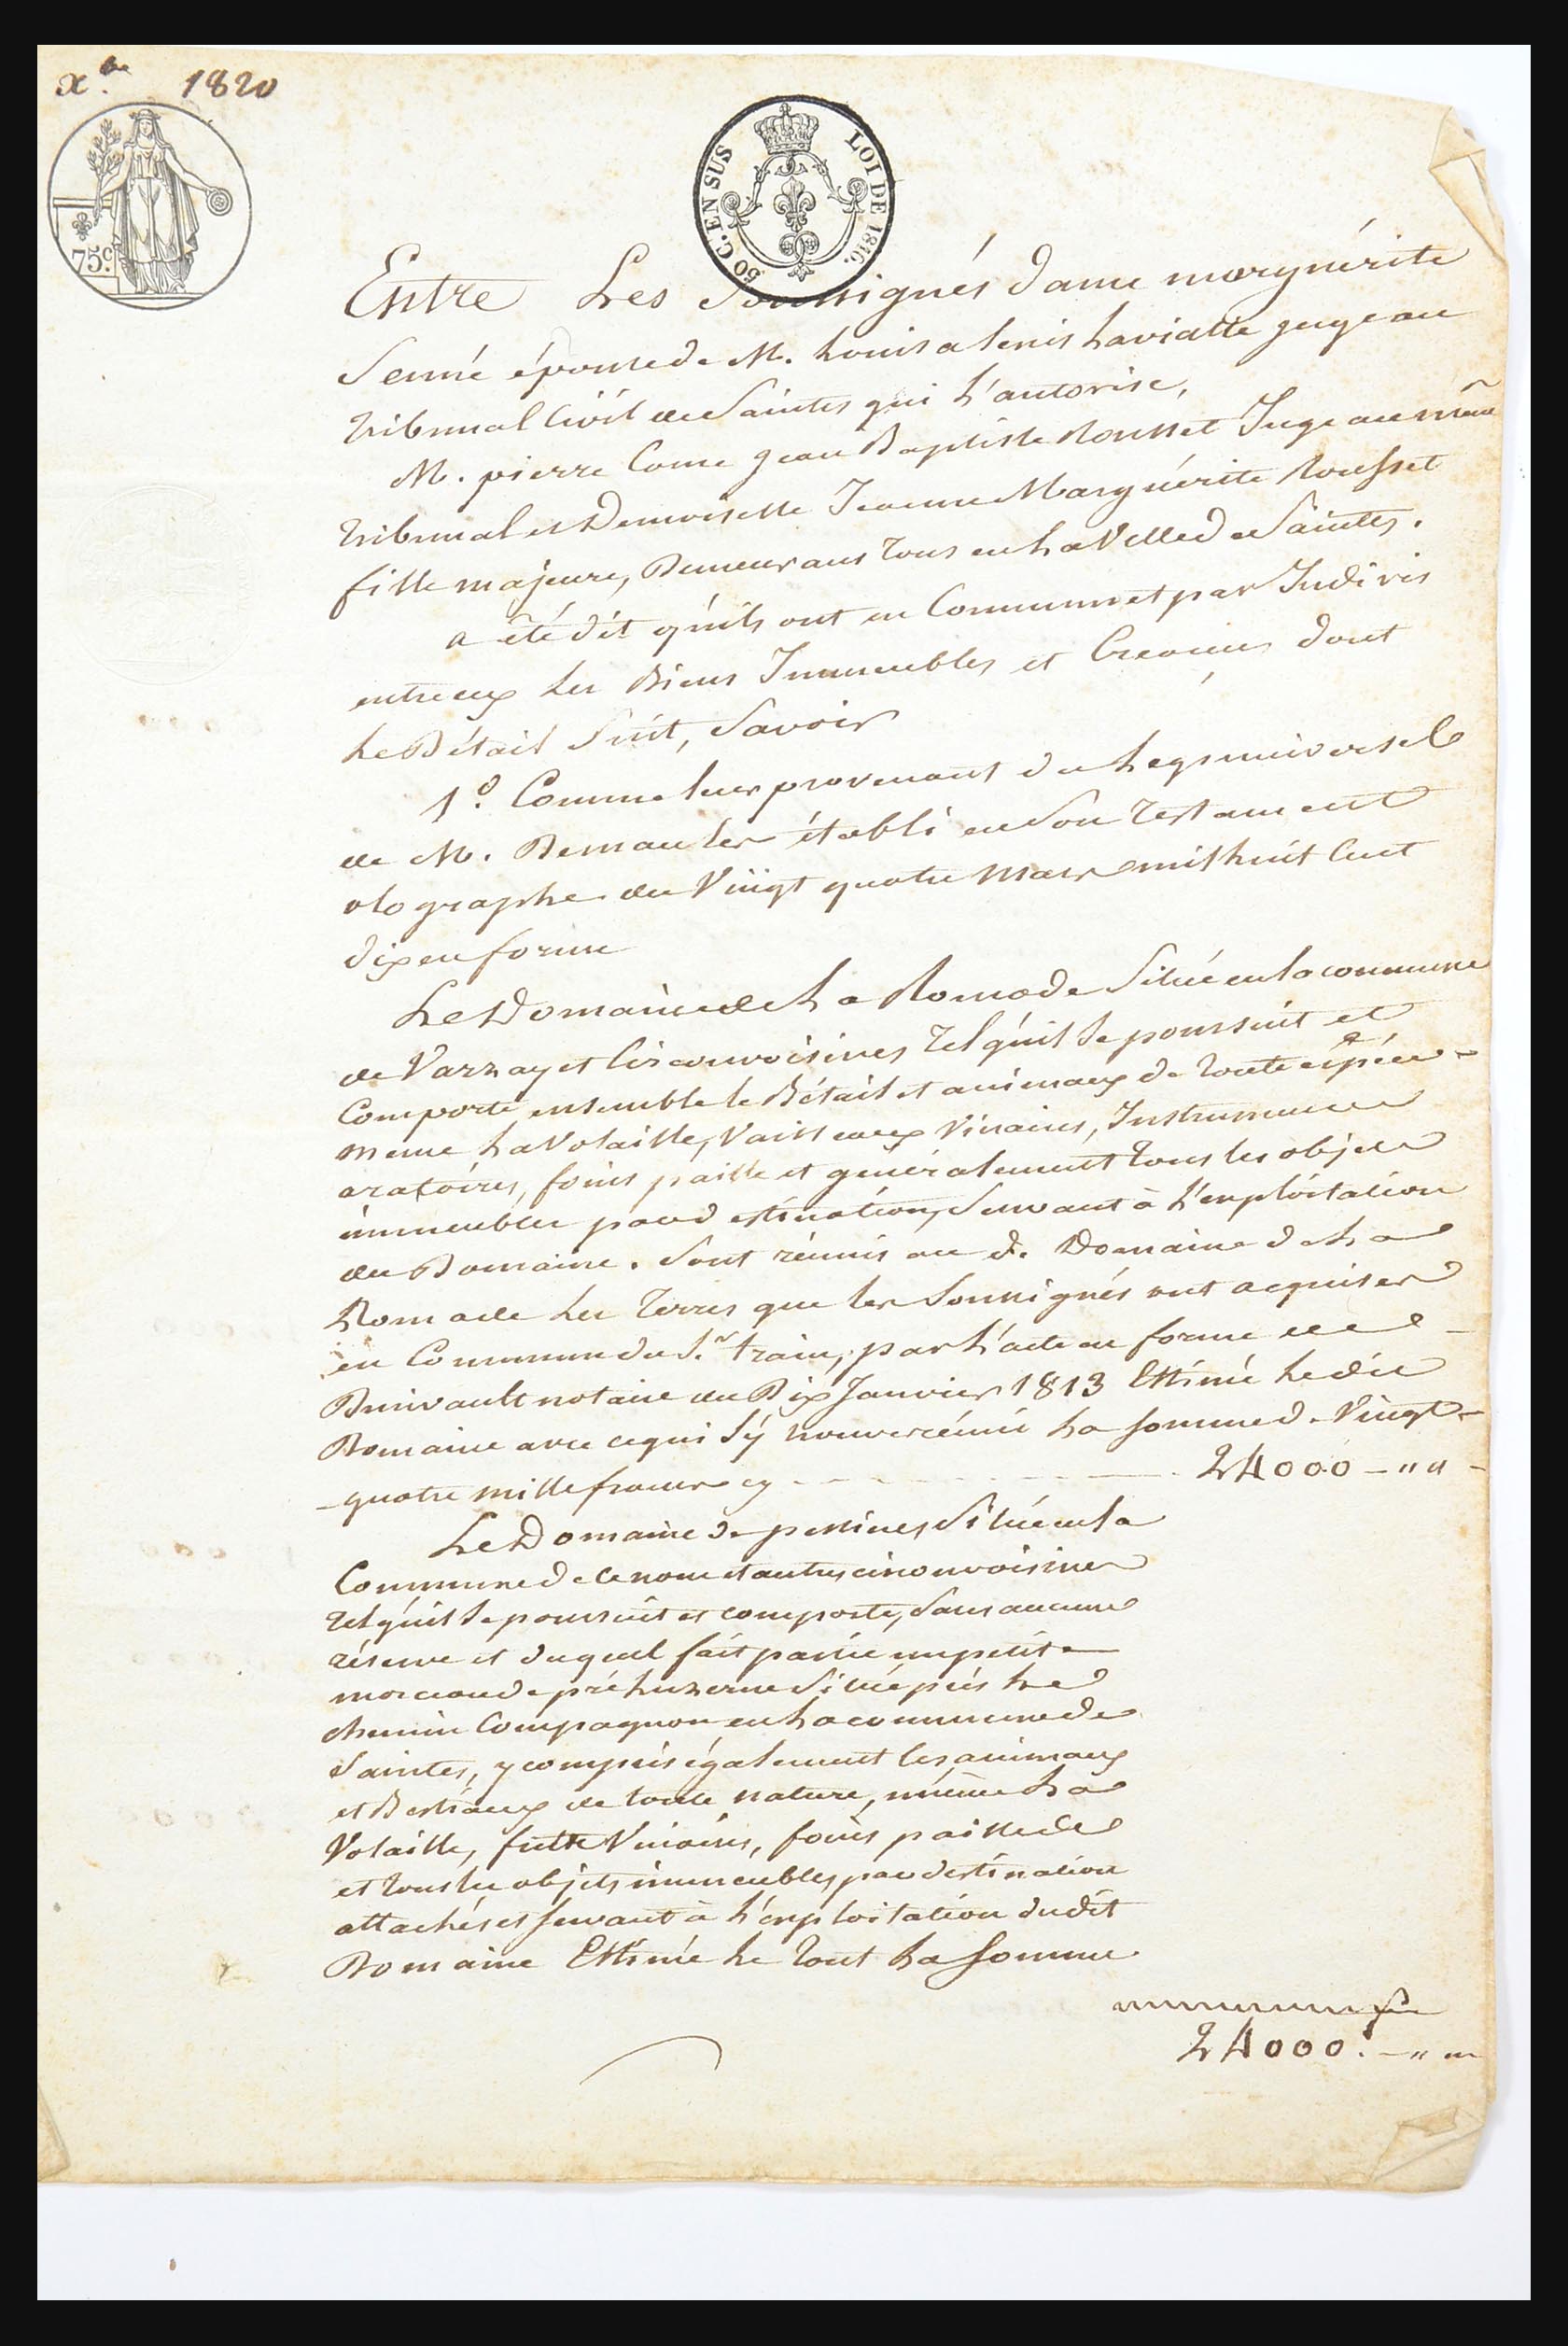 xbre 1820
75c.
50 C. EN SUS LOI DE 1816.
Entre Les Soussignés dame marguérite
Senné épouse de M. Louis alenis Laviatte juge au
tribunal Civil de Saintes qui L'autorise,
M. pierre Come jean Baptiste Rousset Juge au même
tribunal et Demoiselle Jeanne Marguérite Rousset
fille majeure, Demeurans tous en La Ville de Saintes.
a été dit qu'ils ont en Commun et par Indivis
entreux Les Biens Immeubles et Créances dont
Le Détail Suit, Savoir
1º. Comme leur provenant du Legs universel
de M. Demanles établi en Son testament
olographe du Vingt quatre Mars mil huit Cent
dix en forme
Le Domaine de La Romade Situé en la commune
de Varzay et Circonvoisines tel qu'il Se poursuit et
Comporte ensemble le Bétail et animaux de toute espéce
meme La Volaille, Vaisseaux Vinaires, Instrumens
aratoires, foins paille et généralement tous les objets
immeubles par destination, Servant à L'exploitation
du Domaine. Sont réunis au d. Domaine de La
Romade Les terres que les Soussignés ont acquises
en Commun du Sr. train, par L'acte en forme de
Bruivault notaire du Dix Janvier 1813 Estimé Le dit
Domaine avec ce qui S'y trouve réuni La Somme de Vingt-
-quatre mille francs cy - - - - 24000 - " "
Le Domaine de pessines Situé en la
Commune de Ce nom et autres circonvoisines
tel qu'il Se poursuit et comporte, Sans aucune
réserve et duquel fait partie un petit
morceau de pré Luzerne Situé près Le
chemin Compagnon en La commune de
Saintes, y compris également les animaux
et Bestiaux de toute nature, même La
Volaille, futs Vinaires, foins paille de
et tous les objets immeubles par destination
attachés et Servant à L'exploitation dudit
Domaine Estimé Le tout La Somme
24000. - " "